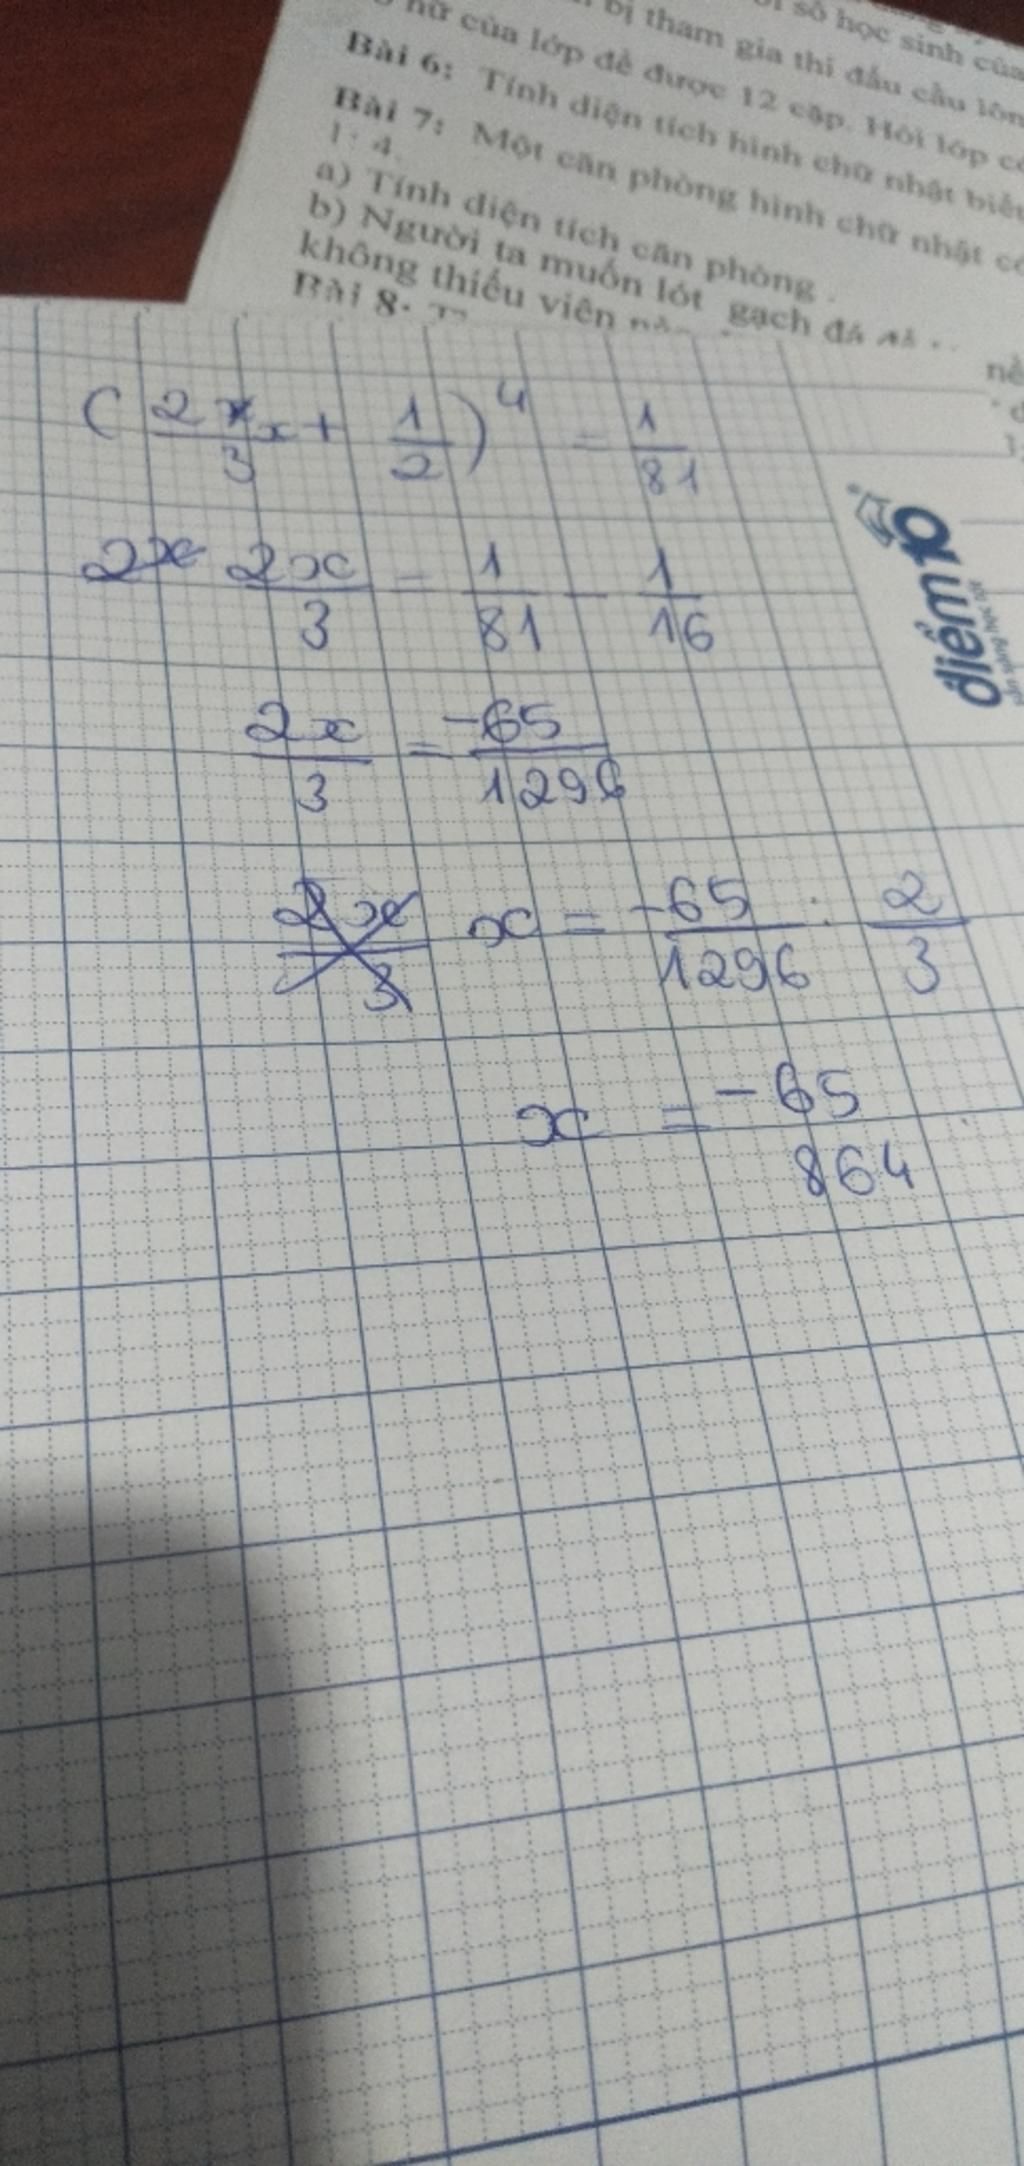 số học sinh của
bị tham gia thi đấu cầu lôn
nữ của lớp để được 12 cặp. Hỏi lớp có
Bài 6: Tính diện tích hình chữ nhật biết
Bài 7: Một căn phòng hình chữ nhật có
1 : 4.
a) Tính diện tích căn phòng .
b) Người ta muốn lót gạch đá
không thiếu viên
Bài 8:
nề
điểm 10
(2/3 x + 1/2)^4 = 1/81
2x 2x/3 = 1/81 - 1/16
2x/3 = -65/1296
2x/3 x = -65/1296 : 2/3
x = -65/864